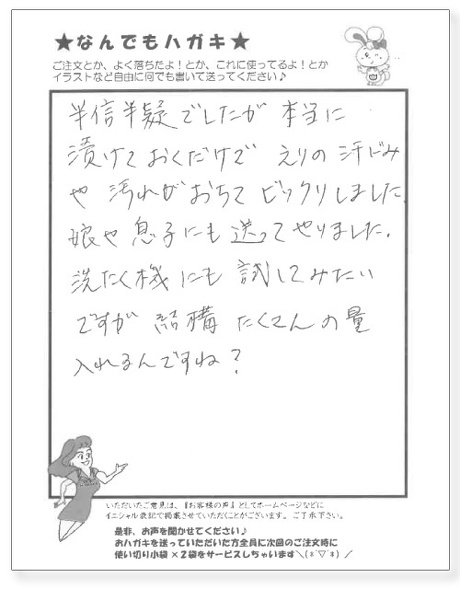 ★なんでもハガキ★
ご注文とか、よく落ちたよ！とか、これに使ってるよ！とか
イラストなど自由に何でも書いて送ってください♪
半信半疑でしたが 本当に
漬けておくだけで えりの汗じみ
や 汚れがおちて ビックリしました。
娘や息子にも送ってやりました。
洗たく機にも 試してみたい
ですが 結構 たくさんの量
入れるんですね？
いただいたご意見は、『お客様の声』としてホームページなどに
イニシャル表記で掲載させていただくことがございます。ご了承下さい。
是非、お声を聞かせてください♪
おハガキを送っていただいた方全員に次回のご注文時に
使い切り小袋×2袋をサービスしちゃいます＼(*´▽`*)／